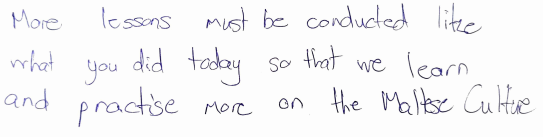 More lessons must be conducted like
what you did today so that we learn
and practise more on the Maltese Culture